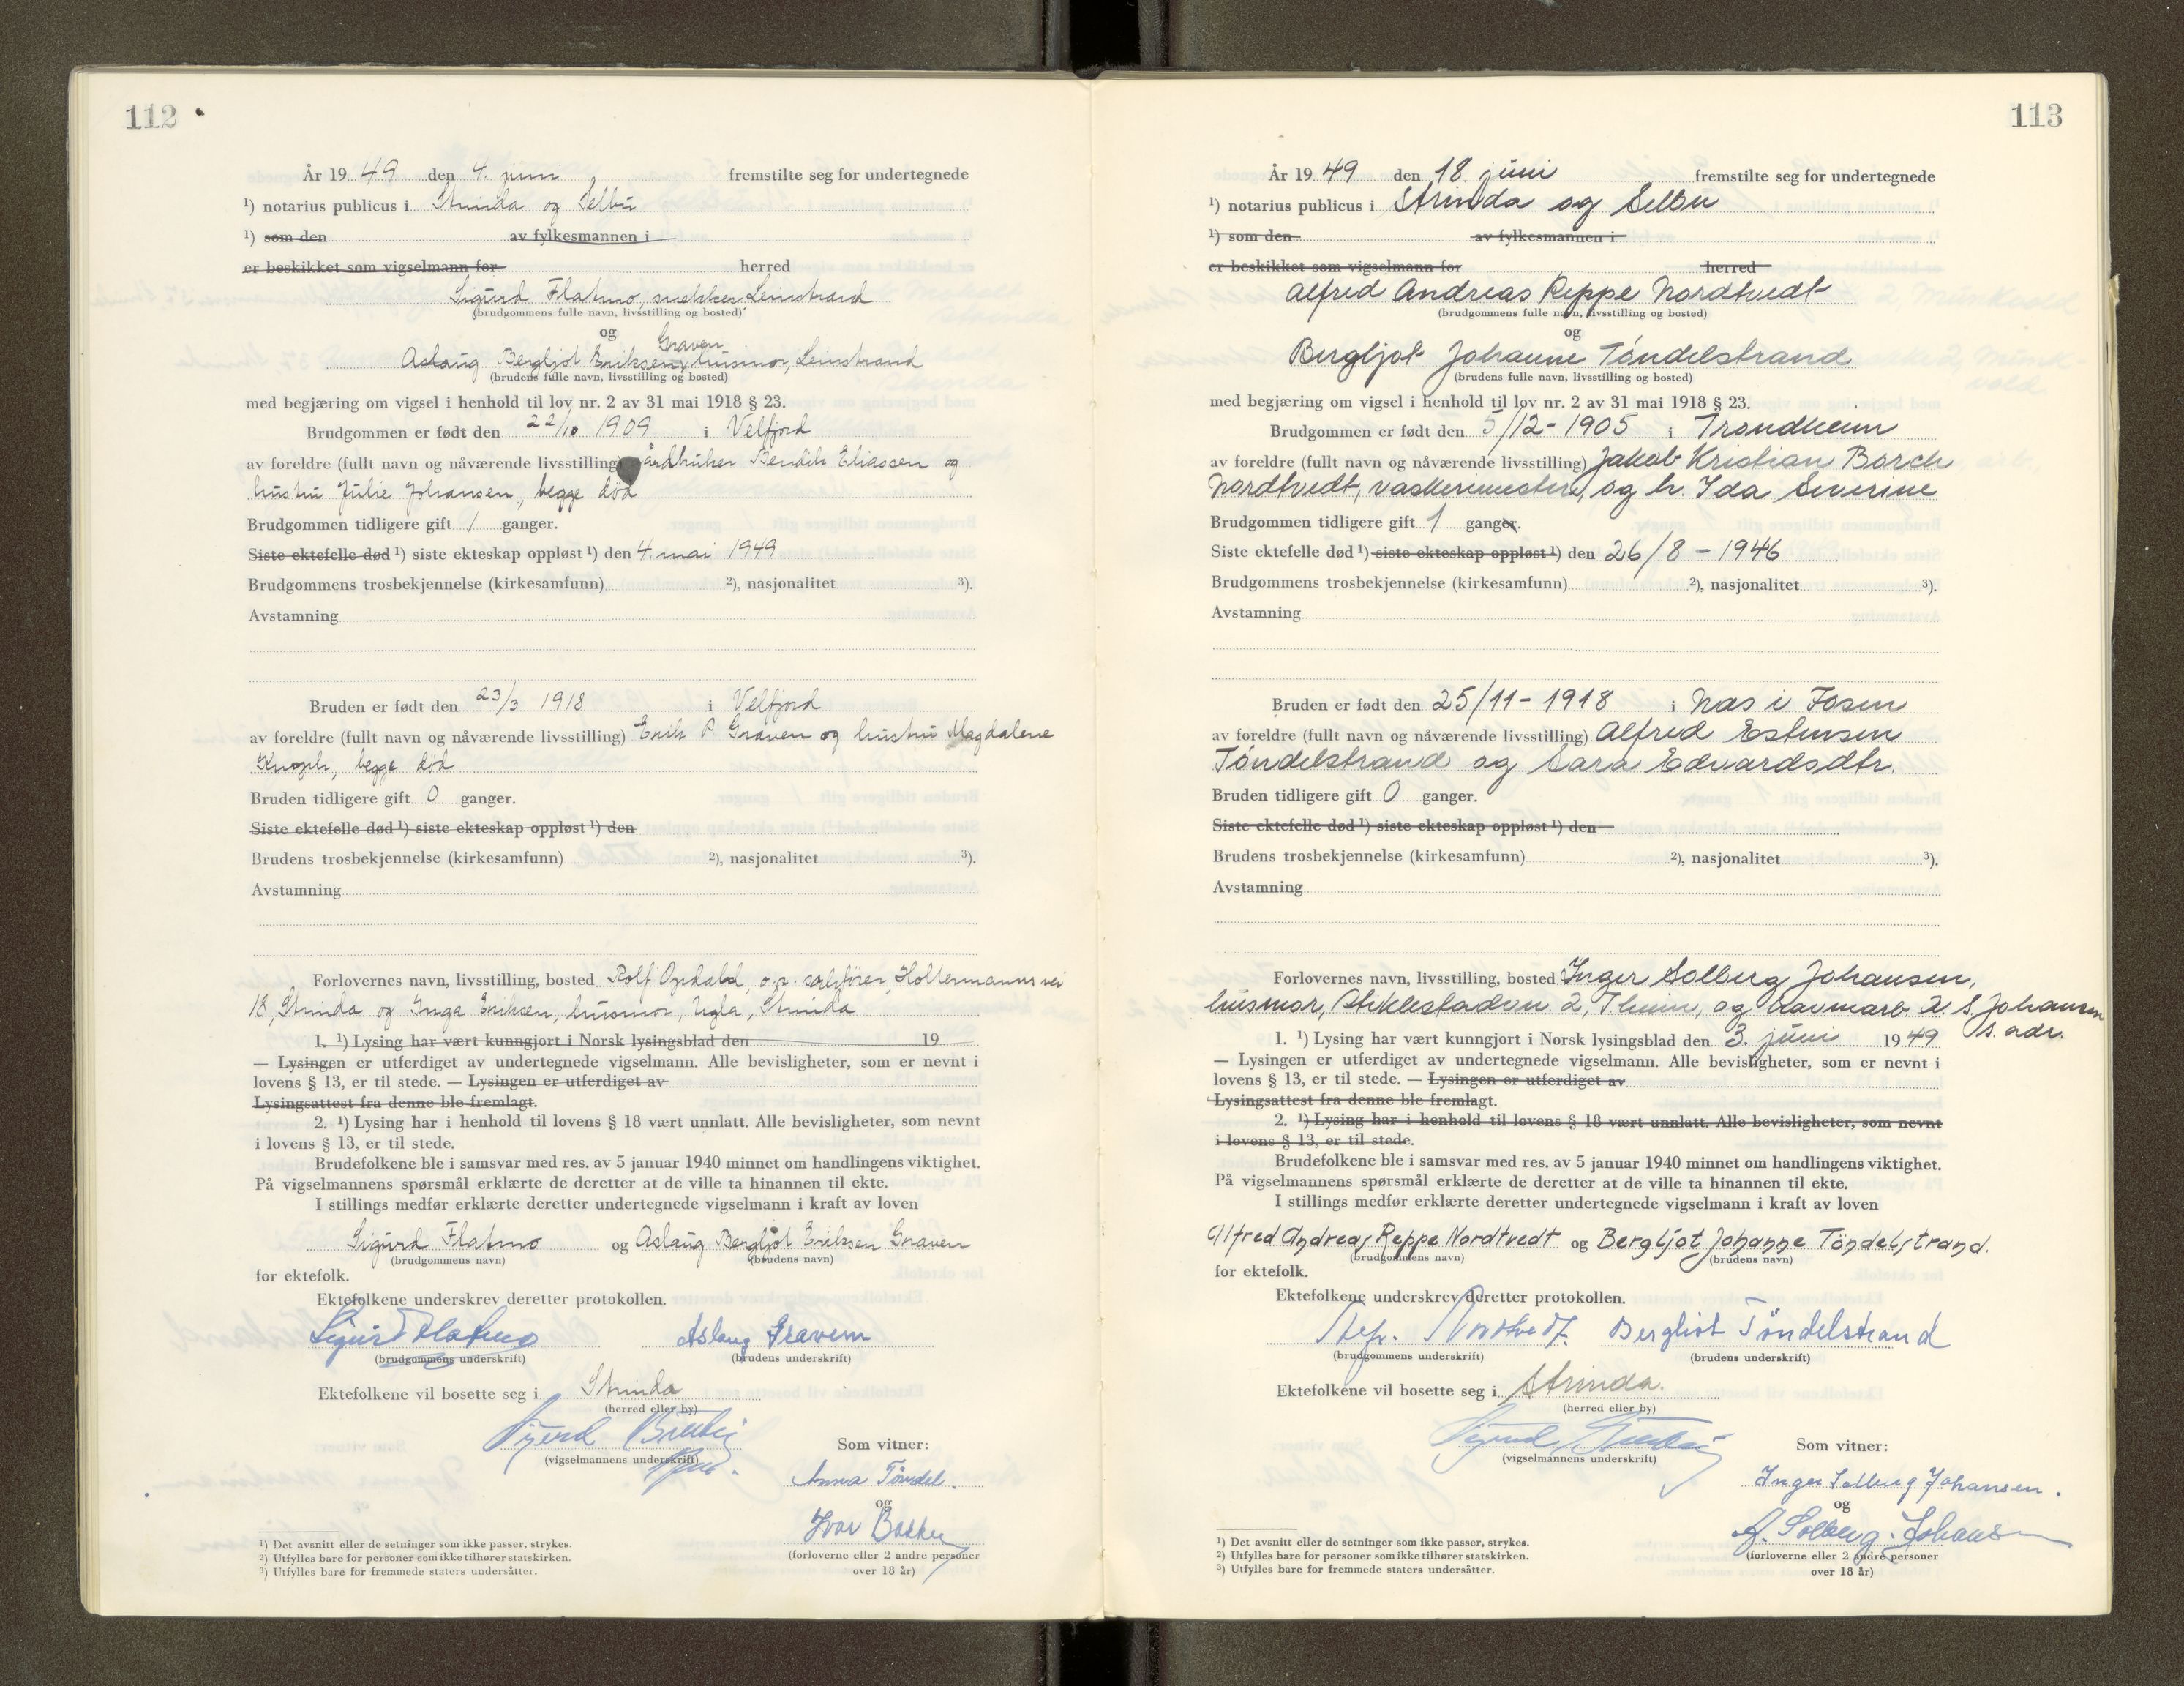 112
År 19 49 den 4. juni fremstilte seg for undertegnede
¹) notarius publicus i Strinda og Selbu
¹) som den av fylkesmannen i
er beskikket som vigselmann for herred
Sigurd Flatmo, snekker, Leinstrand
(brudgommens fulle navn, livsstilling og bosted)
og
Graven
Aslaug Bergljot Eriksen, husmor, Leinstrand
(brudens fulle navn, livsstilling og bosted)
med begjæring om vigsel i henhold til lov nr. 2 av 31 mai 1918 § 23.
Brudgommen er født den 22/10 1909 i Velfjord
av foreldre (fullt navn og nåværende livsstilling) gårdbruker Bendik Eliassen og
hustru Julie Johansen, begge död
Brudgommen tidligere gift 1 ganger.
Siste ektefelle død ¹) siste ekteskap oppløst ¹) den 4. mai 1949
Brudgommens trosbekjennelse (kirkesamfunn) ²), nasjonalitet ³).
Avstamning
Bruden er født den 23/3 1918 i Velfjord
av foreldre (fullt navn og nåværende livsstilling) Erik P. Graven og hustru Magdalene
begge död
Bruden tidligere gift 0 ganger.
Siste ektefelle død ¹) siste ekteskap oppløst ¹) den
Brudens trosbekjennelse (kirkesamfunn) ²), nasjonalitet ³).
Avstamning
Forlovernes navn, livsstilling, bosted Rolf Opdahl, o.r. sakfører, Holtermanns vei
18, Strinda og Inga Eriksen, husmor, Ugla, Strinda
1. ¹) Lysing har vært kunngjort i Norsk lysingsblad den 19
— Lysingen er utferdiget av undertegnede vigselmann. Alle bevisligheter, som er nevnt i
lovens § 13, er til stede. — Lysingen er utferdiget av
Lysingsattest fra denne ble fremlagt.
2. ¹) Lysing har i henhold til lovens § 18 vært unnlatt. Alle bevisligheter, som nevnt
i lovens § 13, er til stede.
Brudefolkene ble i samsvar med res. av 5 januar 1940 minnet om handlingens viktighet.
På vigselmannens spørsmål erklærte de deretter at de ville ta hinannen til ekte.
I stillings medfør erklærte deretter undertegnede vigselmann i kraft av loven
Sigurd Flatmo og Aslaug Bergljot Eriksen Graven
(brudgommens navn) (brudens navn)
for ektefolk.
Ektefolkene underskrev deretter protokollen.
Sigurd Flatmo Aslaug Gravem
(brudgommens underskrift) (brudens underskrift)
Ektefolkene vil bosette seg i Strinda
(herred eller by)
Sigurd
(vigselmannens underskrift)
Som vitner:
Anna Töndel.
og
Ivar
(forloverne eller 2 andre personer
over 18 år)
¹) Det avsnitt eller de setninger som ikke passer, strykes.
²) Utfylles bare for personer som ikke tilhører statskirken.
³) Utfylles bare for fremmede staters undersåtter.
113
År 19 49 den 18 juni fremstilte seg for undertegnede
¹) notarius publicus i Strinda og Selbu
¹) som den av fylkesmannen i
er beskikket som vigselmann for herred
Alfred Andreas Reppe Nordtvedt
(brudgommens fulle navn, livsstilling og bosted)
og
Bergljot Johanne Töndelstrand
(brudens fulle navn, livsstilling og bosted)
med begjæring om vigsel i henhold til lov nr. 2 av 31 mai 1918 § 23.
Brudgommen er født den 5/12 - 1905 i Trondheim
av foreldre (fullt navn og nåværende livsstilling) Jakob Kristian Borch
Nordtvedt, vaskerimester, og h. Ida Severine
Brudgommen tidligere gift 1 ganger.
Siste ektefelle død ¹) siste ekteskap oppløst ¹) den 26/8 - 1946
Brudgommens trosbekjennelse (kirkesamfunn) ²), nasjonalitet ³).
Avstamning
Bruden er født den 25/11 - 1918 i Næs i Fosen
av foreldre (fullt navn og nåværende livsstilling) Alfred Estensen
Töndelstrand og Sara Edvardsdtr.
Bruden tidligere gift 0 ganger.
Siste ektefelle død ¹) siste ekteskap oppløst ¹) den
Brudens trosbekjennelse (kirkesamfunn) ²), nasjonalitet ³).
Avstamning
Forlovernes navn, livsstilling, bosted Inger Solberg Johansen,
husmor, Stiklestadvn. 2, T.heim, og S. Johansen
s. adr.
1. ¹) Lysing har vært kunngjort i Norsk lysingsblad den 3. juni 19 49
— Lysingen er utferdiget av undertegnede vigselmann. Alle bevisligheter, som er nevnt i
lovens § 13, er til stede. — Lysingen er utferdiget av
Lysingsattest fra denne ble fremlagt.
2. ¹) Lysing har i henhold til lovens § 18 vært unnlatt. Alle bevisligheter, som nevnt
i lovens § 13, er til stede.
Brudefolkene ble i samsvar med res. av 5 januar 1940 minnet om handlingens viktighet.
På vigselmannens spørsmål erklærte de deretter at de ville ta hinannen til ekte.
I stillings medfør erklærte deretter undertegnede vigselmann i kraft av loven
Alfred Andreas Reppe Nordtvedt og Bergljot Johanne Töndelstrand.
(brudgommens navn) (brudens navn)
for ektefolk.
Ektefolkene underskrev deretter protokollen.
Alfr. Nordtvedt. Bergliot Töndelstrand
(brudgommens underskrift) (brudens underskrift)
Ektefolkene vil bosette seg i Strinda.
(herred eller by)
Sigurd
(vigselmannens underskrift)
Som vitner:
Inger Solberg Johansen.
og
A. Solberg Johansen
(forloverne eller 2 andre personer
over 18 år)
¹) Det avsnitt eller de setninger som ikke passer, strykes.
²) Utfylles bare for personer som ikke tilhører statskirken.
³) Utfylles bare for fremmede staters undersåtter.